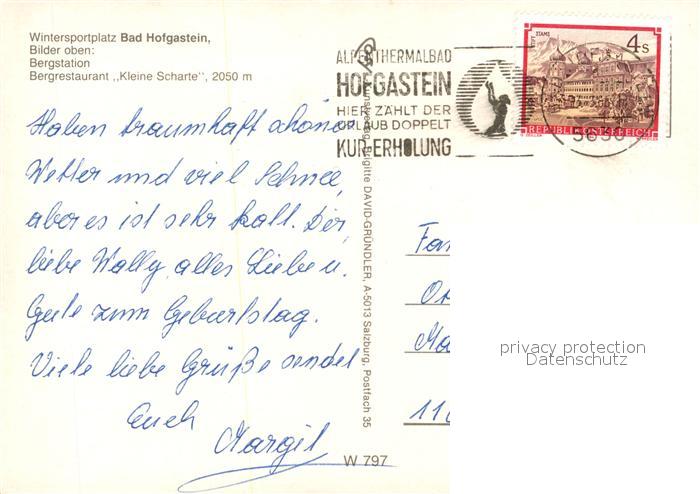 Wintersportplatz Bad Hofgastein,
Bilder oben:
Bergstation
Bergrestaurant „Kleine Scharte", 2050 m
ALPENTHERMALBAD
HOFGASTEIN
HIER ZÄHLT DER
URLAUB DOPPELT
KUR-ERHOLUNG
STIFT STAMS
4 S
REPUBLIK ÖSTERREICH
5630
Haben traumhaft schönes
Wetter und viel Schnee,
aber es ist sehr kalt. Dir,
liebe Wally, alles Liebe u.
Gute zum Geburtstag.
Viele liebe Grüße sendet
Euch
Margit
Kunstverlag Brigitte DAVID-GRÜNDLER, A-5013 Salzburg, Postfach 35
W 797
Fam
privacy protection
Datenschutz